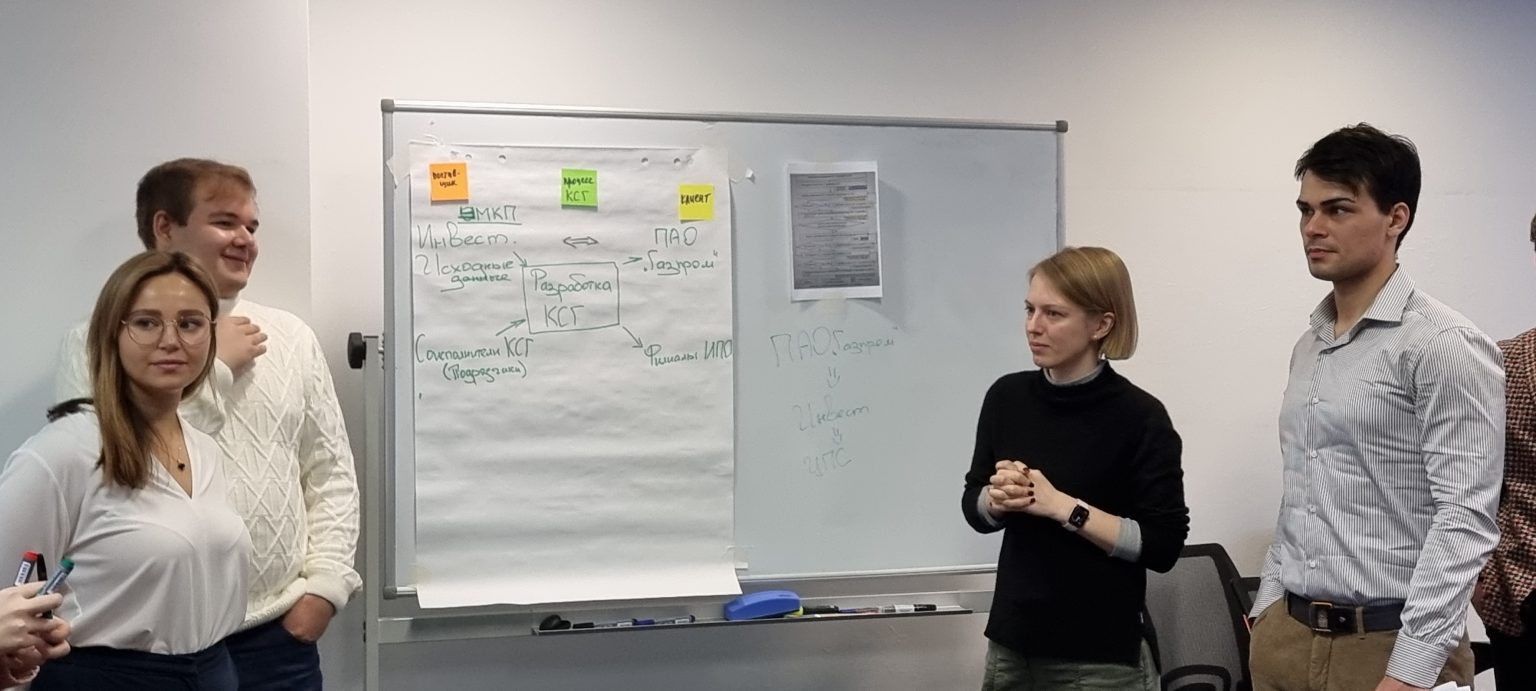 Постав-
щик
процесс
КСГ
клиент
МКП
Инвест.
Исходные
данные
⇔
ПАО
"Газпром"
Разработка
КСГ
Соисполнители КСГ
(Подрядчики)
Филиалы ИПО
ПАО "Газпром"
Инвест
ЦПС